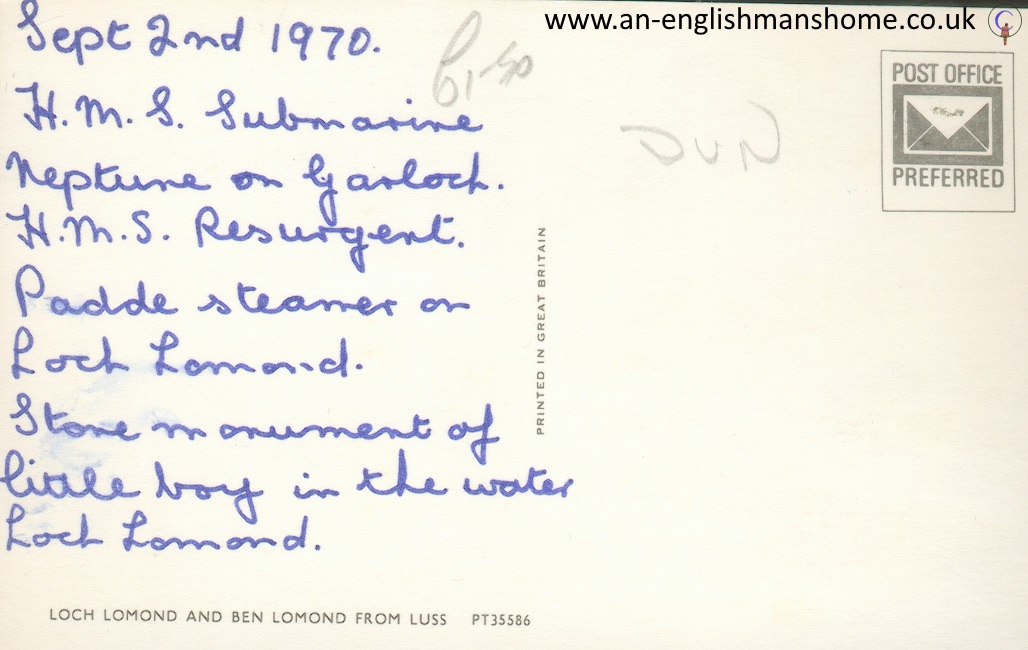 www.an-englishmanshome.co.uk
Sept 2nd 1970.
H.M.S. Submarine
Neptune on Garloch.
H.M.S. Resurgent.
Padde steamer on
Loch Lomond.
Stone monument of
little boy in the water
Loch Lomond.
DUN
POST OFFICE
PREFERRED
PRINTED IN GREAT BRITAIN
LOCH LOMOND AND BEN LOMOND FROM LUSS PT35586